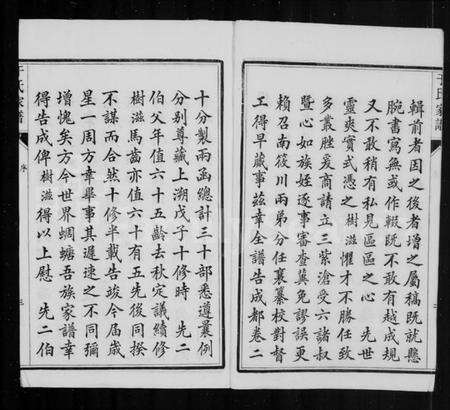 于氏家譜
輯前者因之後者增之屬稿既就懸
腕書寫無或作輟既不敢有越成規
又不敢稍有私見區區之心　先世
靈爽實式憑之樹滋懼才不勝任致
多叢脞爰商請立三紫滄受六諸叔
暨心如族姪逐事審查冀免謬誤更
賴召南筱川兩弟分任襄纂校對督
工得早蕆事茲幸全譜告成都卷二
十分製兩函總計三十部悉遵曩例
分別尊藏上溯戊子十修時　先二
伯父年值六十五齡去秋定議續修
樹滋馬齒亦值六十有五先後同揆
不謀而合然十修半載告竣今屆歲
星一周方幸畢事其遲速之不同彌
增愧矣方今世界蜩螗吾族家譜幸
得告成俾樹滋得以上慰　先二伯
于氏家譜
序